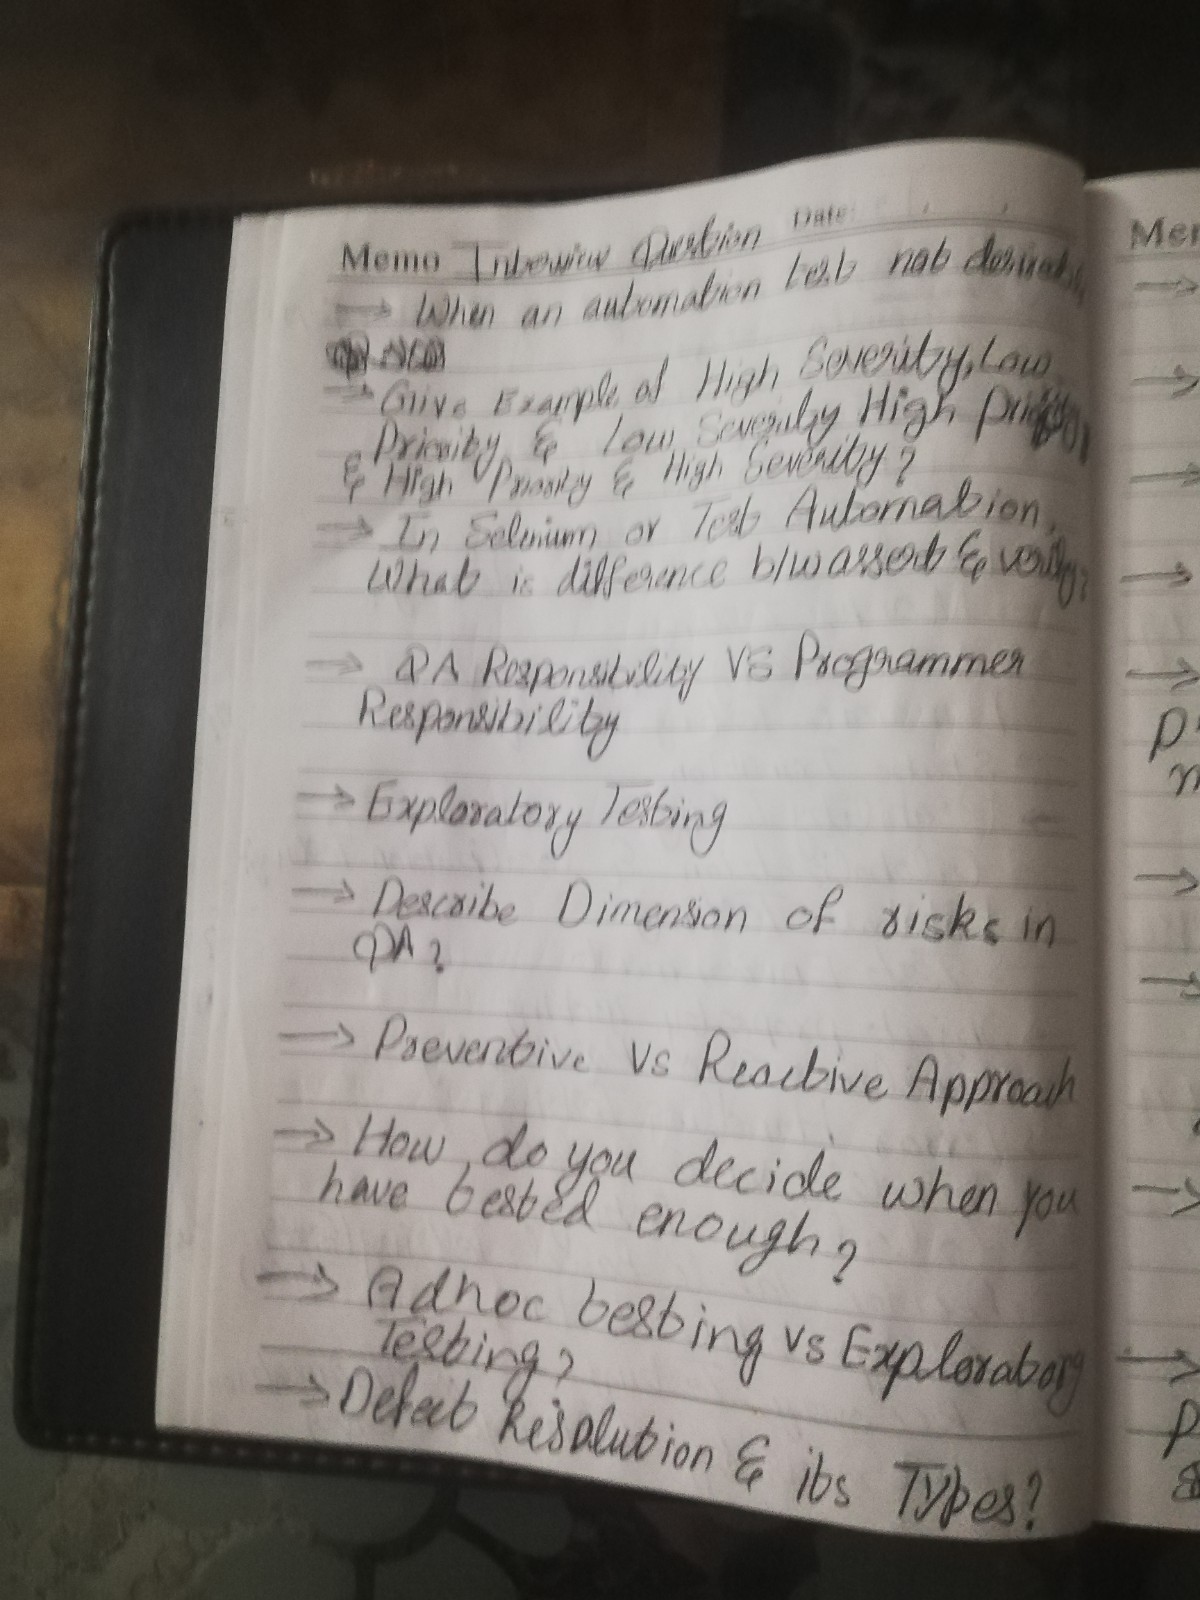 Memo Interview Question Date:
→ When an automation test not desirable
→ Give Example of High Severity, Low
Priority & Low Severity High Priority,
& High Priority & High Severity?
→ In Selenium or Test Automation,
What is difference b/w assert & verify?
→ QA Responsibility VS Programmer
Responsibility
→ Exploratory Testing
→ Describe Dimension of risks in
QA?
→ Preventive Vs Reactive Approach
→ How do you decide when you
have tested enough?
→ Adhoc testing vs Exploratory
Testing?
→ Defect Resolution & its Types?